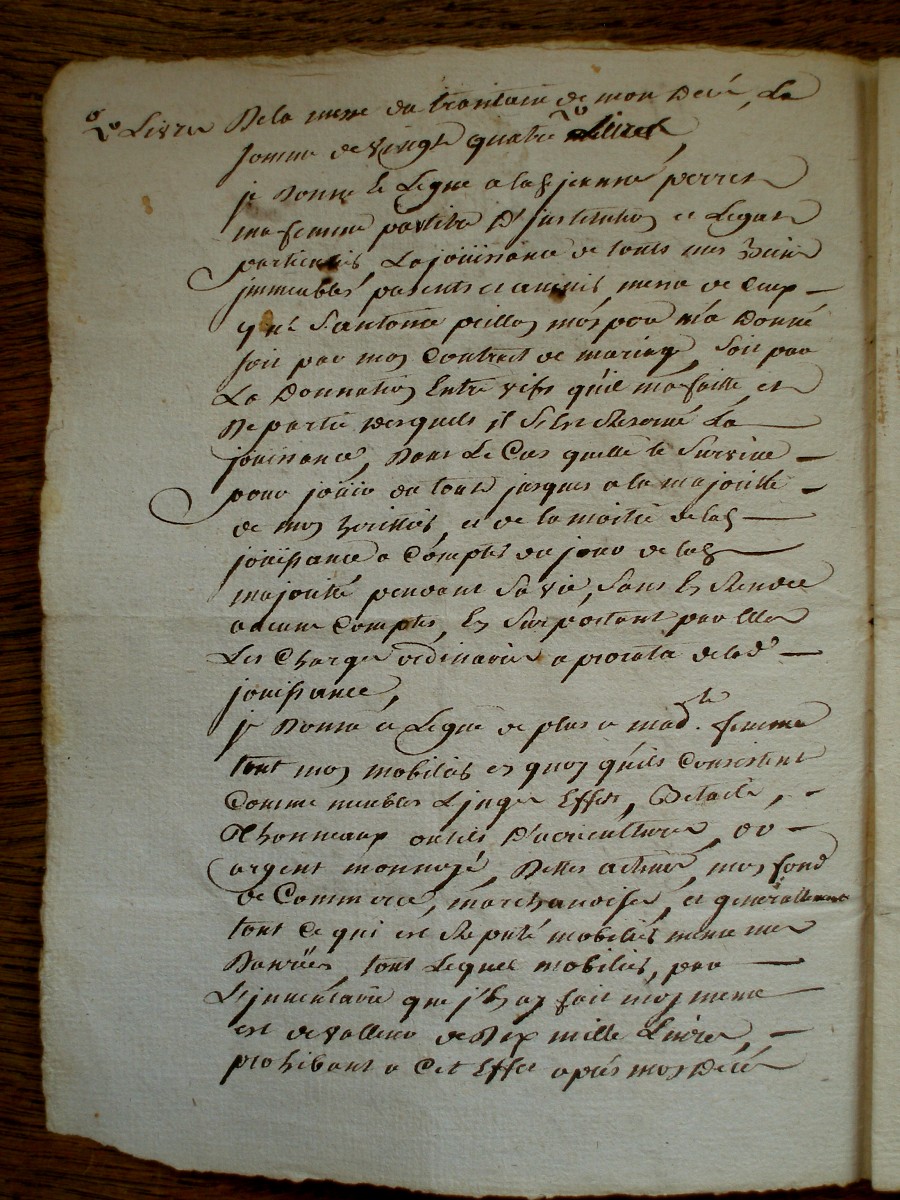 Livres De la messe du trantain de mon Decé, La
somme de vingt quatre
je Donne & Legue a lad jeanne perret
ma femme par titre D'institution et Legat
particuliés, La joüissance de touts mes Biens
jmmeubles presents et avenir meme de Ceux
qu'a S. antoine peillon mon pere m'a Donné
soit par mon Contract de mariage, soit par
La Donnation Entre vifs qu'il m'a faitte et
De partie desquels il S'est Reservé La
jouissance, Dans Le Cas quelle te Survive
pour joüir du tout jusques a la majorité
de mon heritiés, et de la moitié de lad
jouissance a Compter du jour de lad
majorité pendant Sa vie, Sans En Rendre
aucune Comptes, En Surportant par Elle
Les Charges ordinaires a prorata de lad
jouissance,
je Donne et Legue de plus a mad. te femme
tout mon mobiliés en quoy qu'il Consistent
Comme meubles Linges Effets, Betails,
Thonneaux outils D'agriculture, or
argent monnoyé, Dettes actives, mon fond
de Commerce, marchandises, et generallement
tout Ce qui est Reputé mobiliés meme mes
Danrées, tout Lequel mobiliés, par
L'inventaire que j'En ay fait moy meme
est de valleur de Dix mille Livres,
prohibant a Cet Effet aprés mon Decé